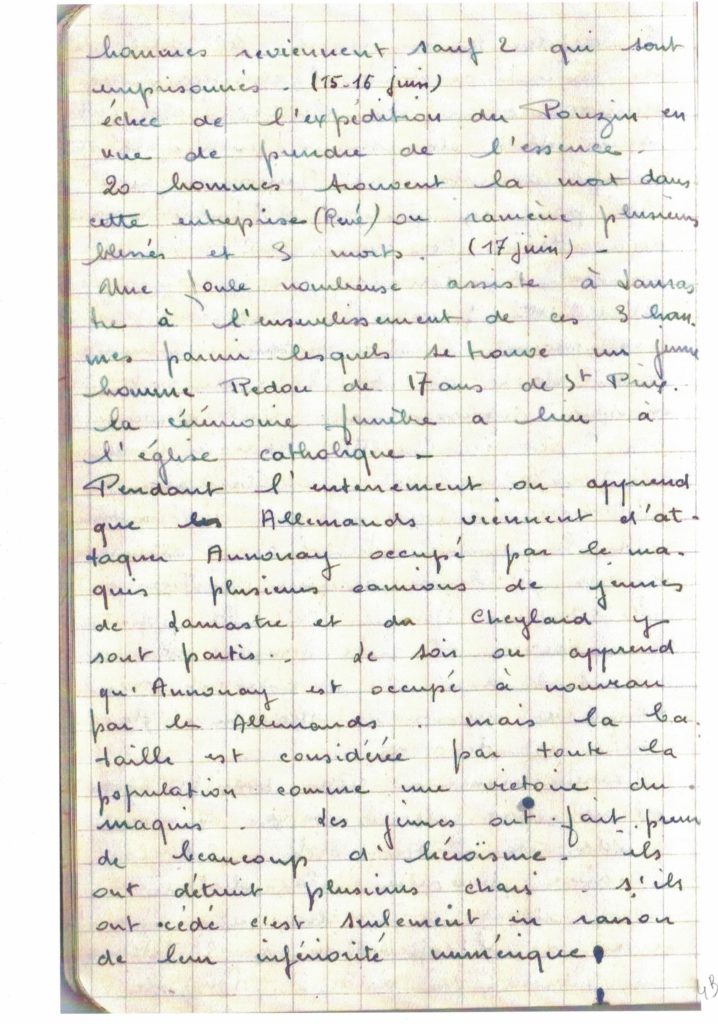 hommes reviennent sauf 2 qui sont
emprisonnés. (15-16 juin)
échec de l'expédition du Pouzin en
vue de prendre de l'essence.
20 hommes trouvent la mort dans
cette entreprise (René) on ramène plusieurs
blessés et 3 morts. (17 juin) -
Une foule nombreuse assiste à Lamas
tre à l'ensevelissement de ces 3 hom.
mes parmi lesquels se trouve un jeune
homme Redon de 17 ans de St Prix.
la cérémonie funèbre a lieu à
l'église catholique -
Pendant l'enterrement on apprend
que les Allemands viennent d'at-
taquer Annonay occupé par le ma-
quis plusieurs camions de jeunes
de Lamastre et du Cheylard y
sont partis.. Le soir on apprend
qu'Annonay est occupé à nouveau
par les Allemands. mais la ba.
taille est considérée par toute la
population comme une victoire du
maquis. Les jeunes ont fait preu
de beaucoup d'héroïsme - ils
ont détruit plusieurs chars. s'ils
ont cédé c'est seulement en raison
de leur infériorité numérique!
4B